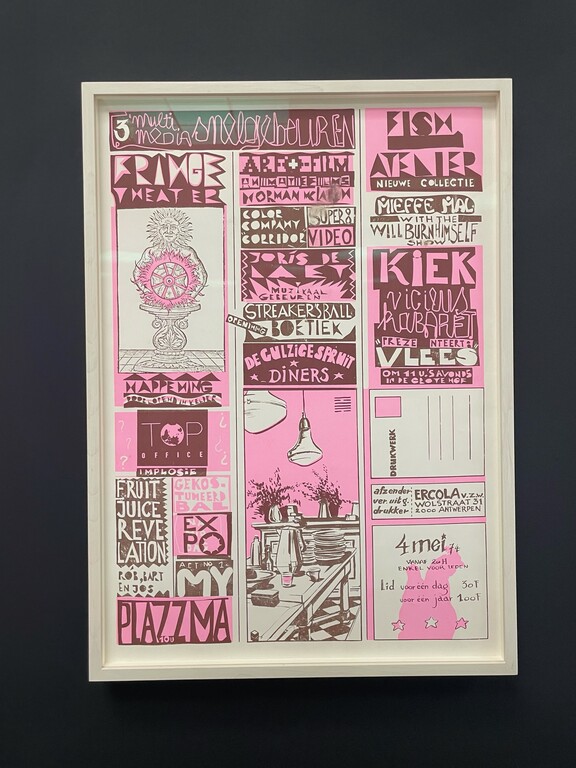 3 multi
media snelgebeuren
FRINGE
THEATER
HAPPENING
DOOR OPEND IN KELDER
? ?
TOP
OFFICE
IMPLOSIE
FRUIT
JUICE
REVE
LATION
ROB, BART
EN JOS
GEKOS-
TUMEERD
BAL
EXPO
ACT NO 1
MY
PLAZZMA
ART+FILM
ANIMATIEFILMS
NORMAN
COLOR
COMPANY
"CORRIDOR"
SUPER 8
VIDEO
JORIS DE
MUZIKAAL
GEBEUREN
STREAKERSBALL
OPENING
BOETIEK
DE GULZIGE SPRUIT
DINERS
FISH
ATELIER
NIEUWE COLLECTIE
MIEFFE MAC
WITH THE
WILL BURN HIMSELF
SHOW
KIEK
VICIEUS
KABARET
"PREZENTEERT"
VLEES
OM 11 U. 'S AVONDS
IN DE GROTE HOF
DRUKWERK
afzender
ver. uitg.
drukker
ERCOLA v.z.w.
WOLSTRAAT 31
2000 ANTWERPEN
4 mei 74
VANAF 20H
ENKEL VOOR LEDEN
Lid voor één dag 30F
voor één jaar 100F